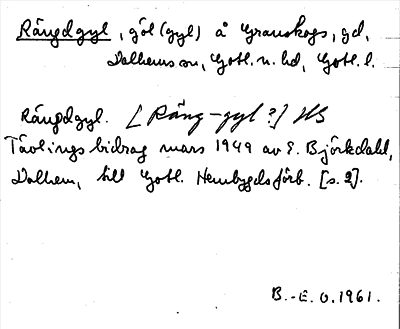 Rängdgyl, göl (gyl) å Granskogs, gd,
Dalhems sn, Gotl. n. hd, Gotl. l.
Rängdgyl. [Räng-gyl ?] HS
Tävlingsbidrag mars 1949 av E. Björkdahl,
Dalhem, till Gotl. Hembygdsförb. [s. 2].
B.-E. O. 1961.